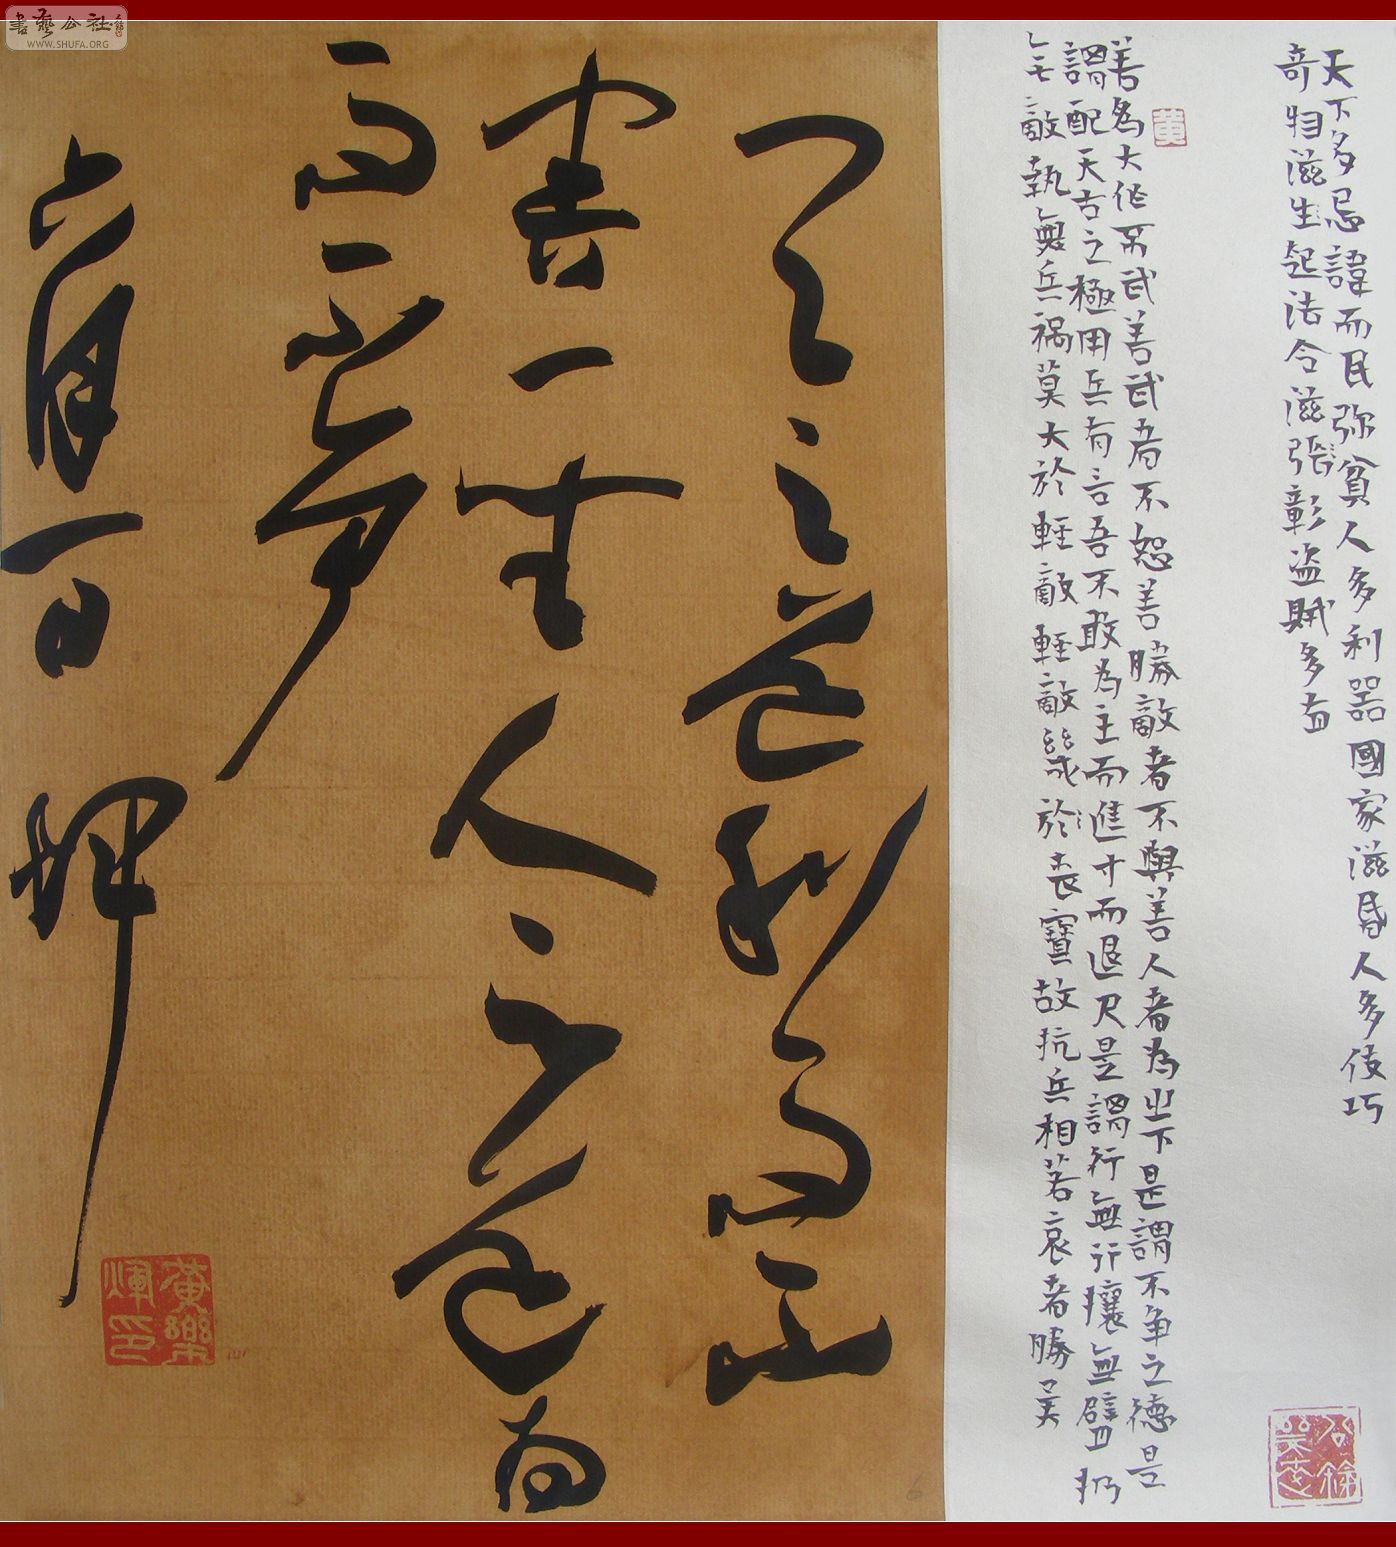 書藝公社
WWW.SHUFA.ORG
天下多忌諱而民弥貧人多利器國家滋昏人多伎巧
奇物滋生起法令滋張彰盗賊多有
黃
善為大佐不武善武者不怒善勝敵者不與善人者為之下是謂不争之德是
謂配天古之極用兵有言吾不敢為主而進寸而退尺是謂行無行攘無臂扔
無敵執無兵禍莫大於輕敵輕敵幾於喪寶故抗兵相若哀者勝矣
天之道利而不
害聖人之道為
而不爭
六月一日煇
黃樂煇印